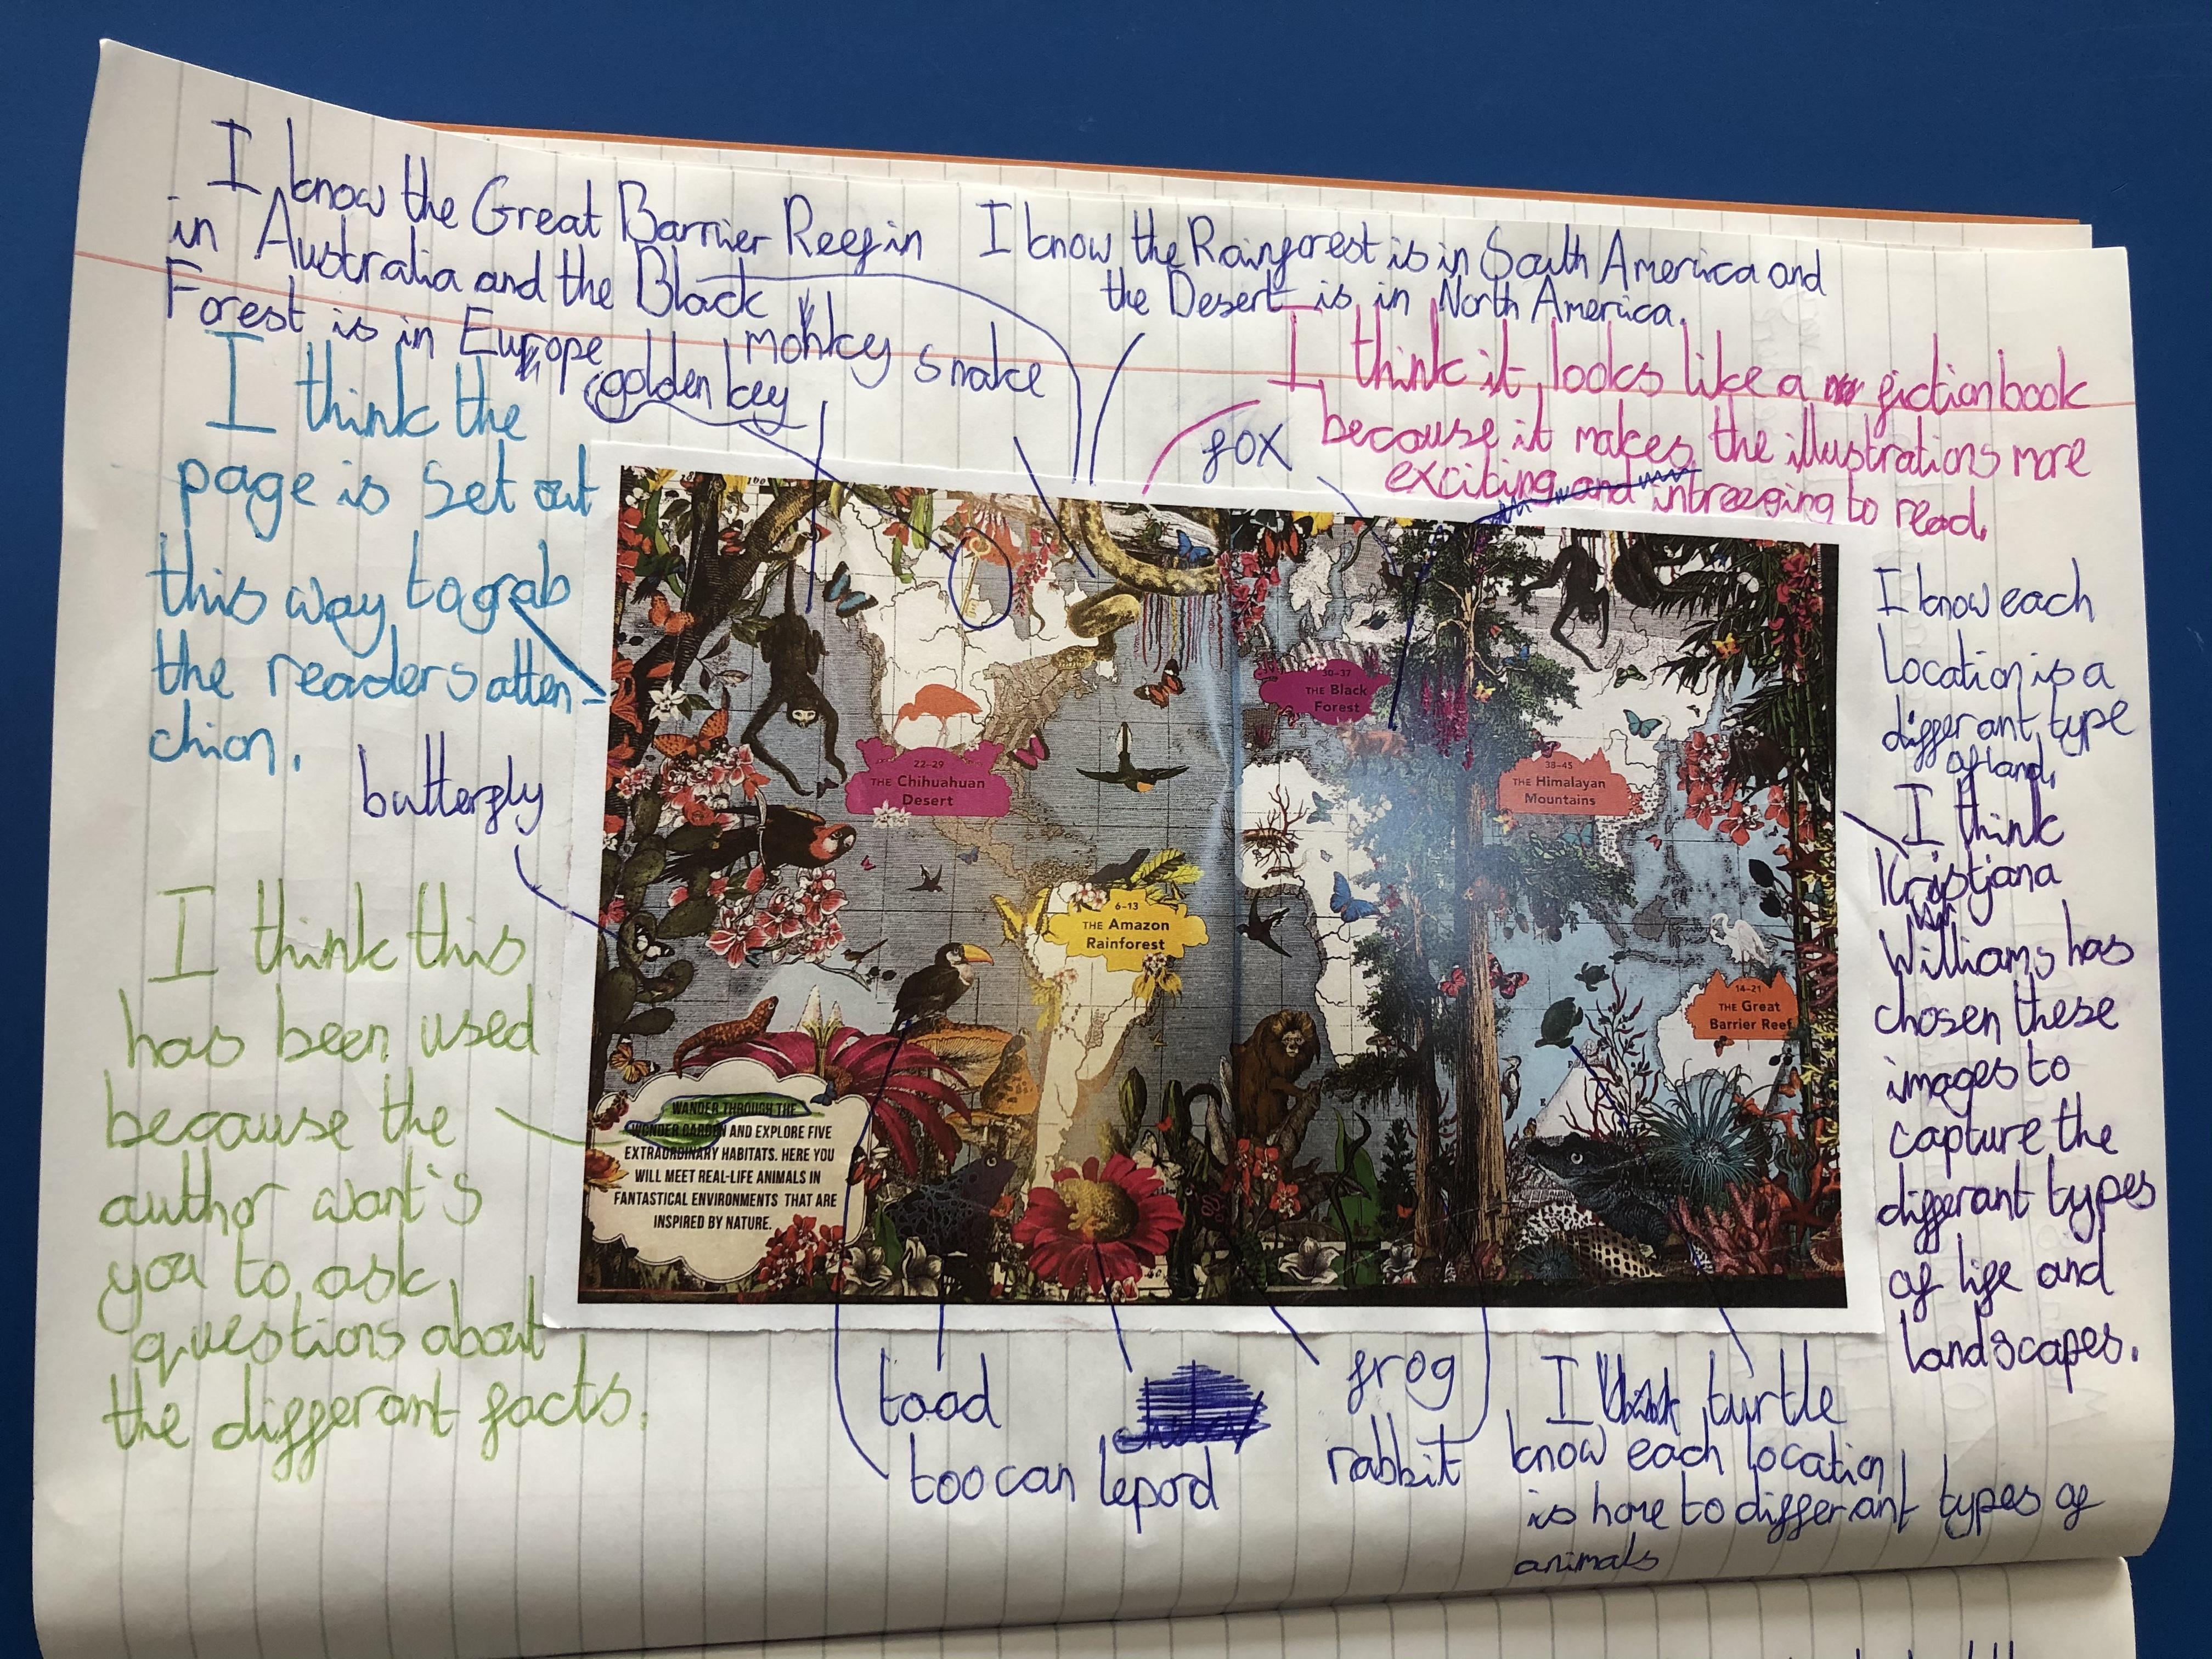 I know the Great Barrier Reef in
in Australia and the Black
Forest is in Europe
I know the Rainforest is in South America and
the Desert is in North America.
golden key
monkey
snake
fox
I think it looks like a fiction book
because it makes the illustrations more
exciting and to read.
I think the
page is set out
this way to grab
the readers atten-
chion.
butterfly
I think this
has been used
because the
author want's
you to ask
questions about
the differant facts.
I know each
Location is a
differant type
of land.
I think
Kristjana
Williams has
chosen these
images to
capture the
differant types
of life and
landscapes.
22-29
THE Chihuahuan
Desert
30-37
THE Black
Forest
38-45
THE Himalayan
Mountains
6-13
THE Amazon
Rainforest
14-21
THE Great
Barrier Reef
WANDER THROUGH THE
WONDER GARDEN AND EXPLORE FIVE
EXTRAORDINARY HABITATS. HERE YOU
WILL MEET REAL-LIFE ANIMALS IN
FANTASTICAL ENVIRONMENTS THAT ARE
INSPIRED BY NATURE.
toad
toocan
lepord
frog
rabbit
turtle
I
know each location
is home to differant types of
animals